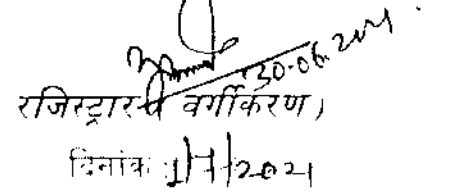 30.06.2021
रजिस्ट्रार वर्गीकरण)
दिनांक 1/7/2021